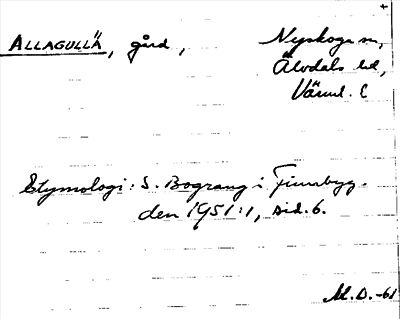 ALLAGULLÄ, gård, Nyskoga sn,
Älvdals hd,
Värml. l
Etymologi: S. Bograng i Finnbyg-
den 1951:1, sid. 6.
M.O.-61